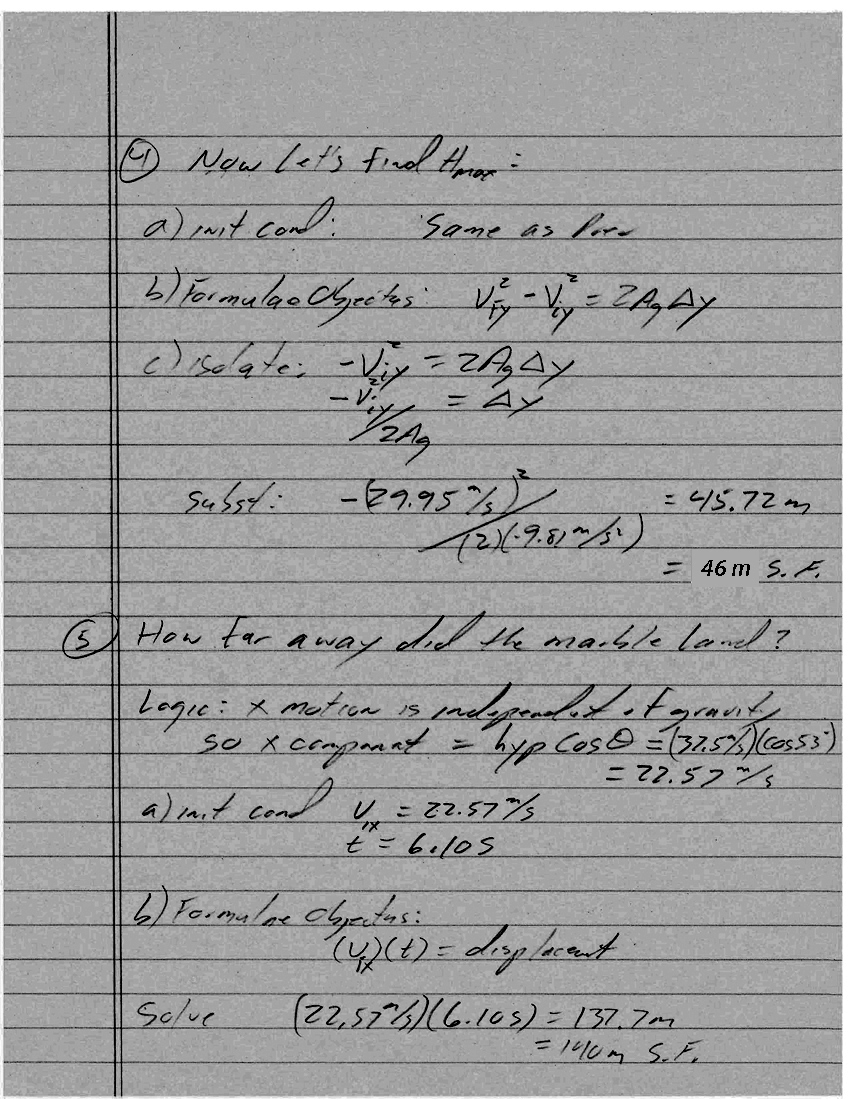 ④ Now Let's Find Hmax:
a) init cond: Same as Prev
b) Formulae Objectus: Vfy² - Viy² = 2Ag Δy
c) isolate: -Viy² = 2Ag Δy
-Viy²/2Ag = Δy
subst: -(29.95 m/s)²/(2)(-9.81 m/s²) = 45.72 m
= 46 m S.F.
⑤ How far away did the marble land?
Logic: x motion is independent of gravity
so x component = hyp Cos θ = (37.5 m/s)(cos 53°)
= 22.57 m/s
a) init cond Vix = 22.57 m/s
t = 6.10 s
b) Formulae Objectus:
(Vix)(t) = displacement
Solve (22.57 m/s)(6.10 s) = 137.7 m
= 140 m S.F.